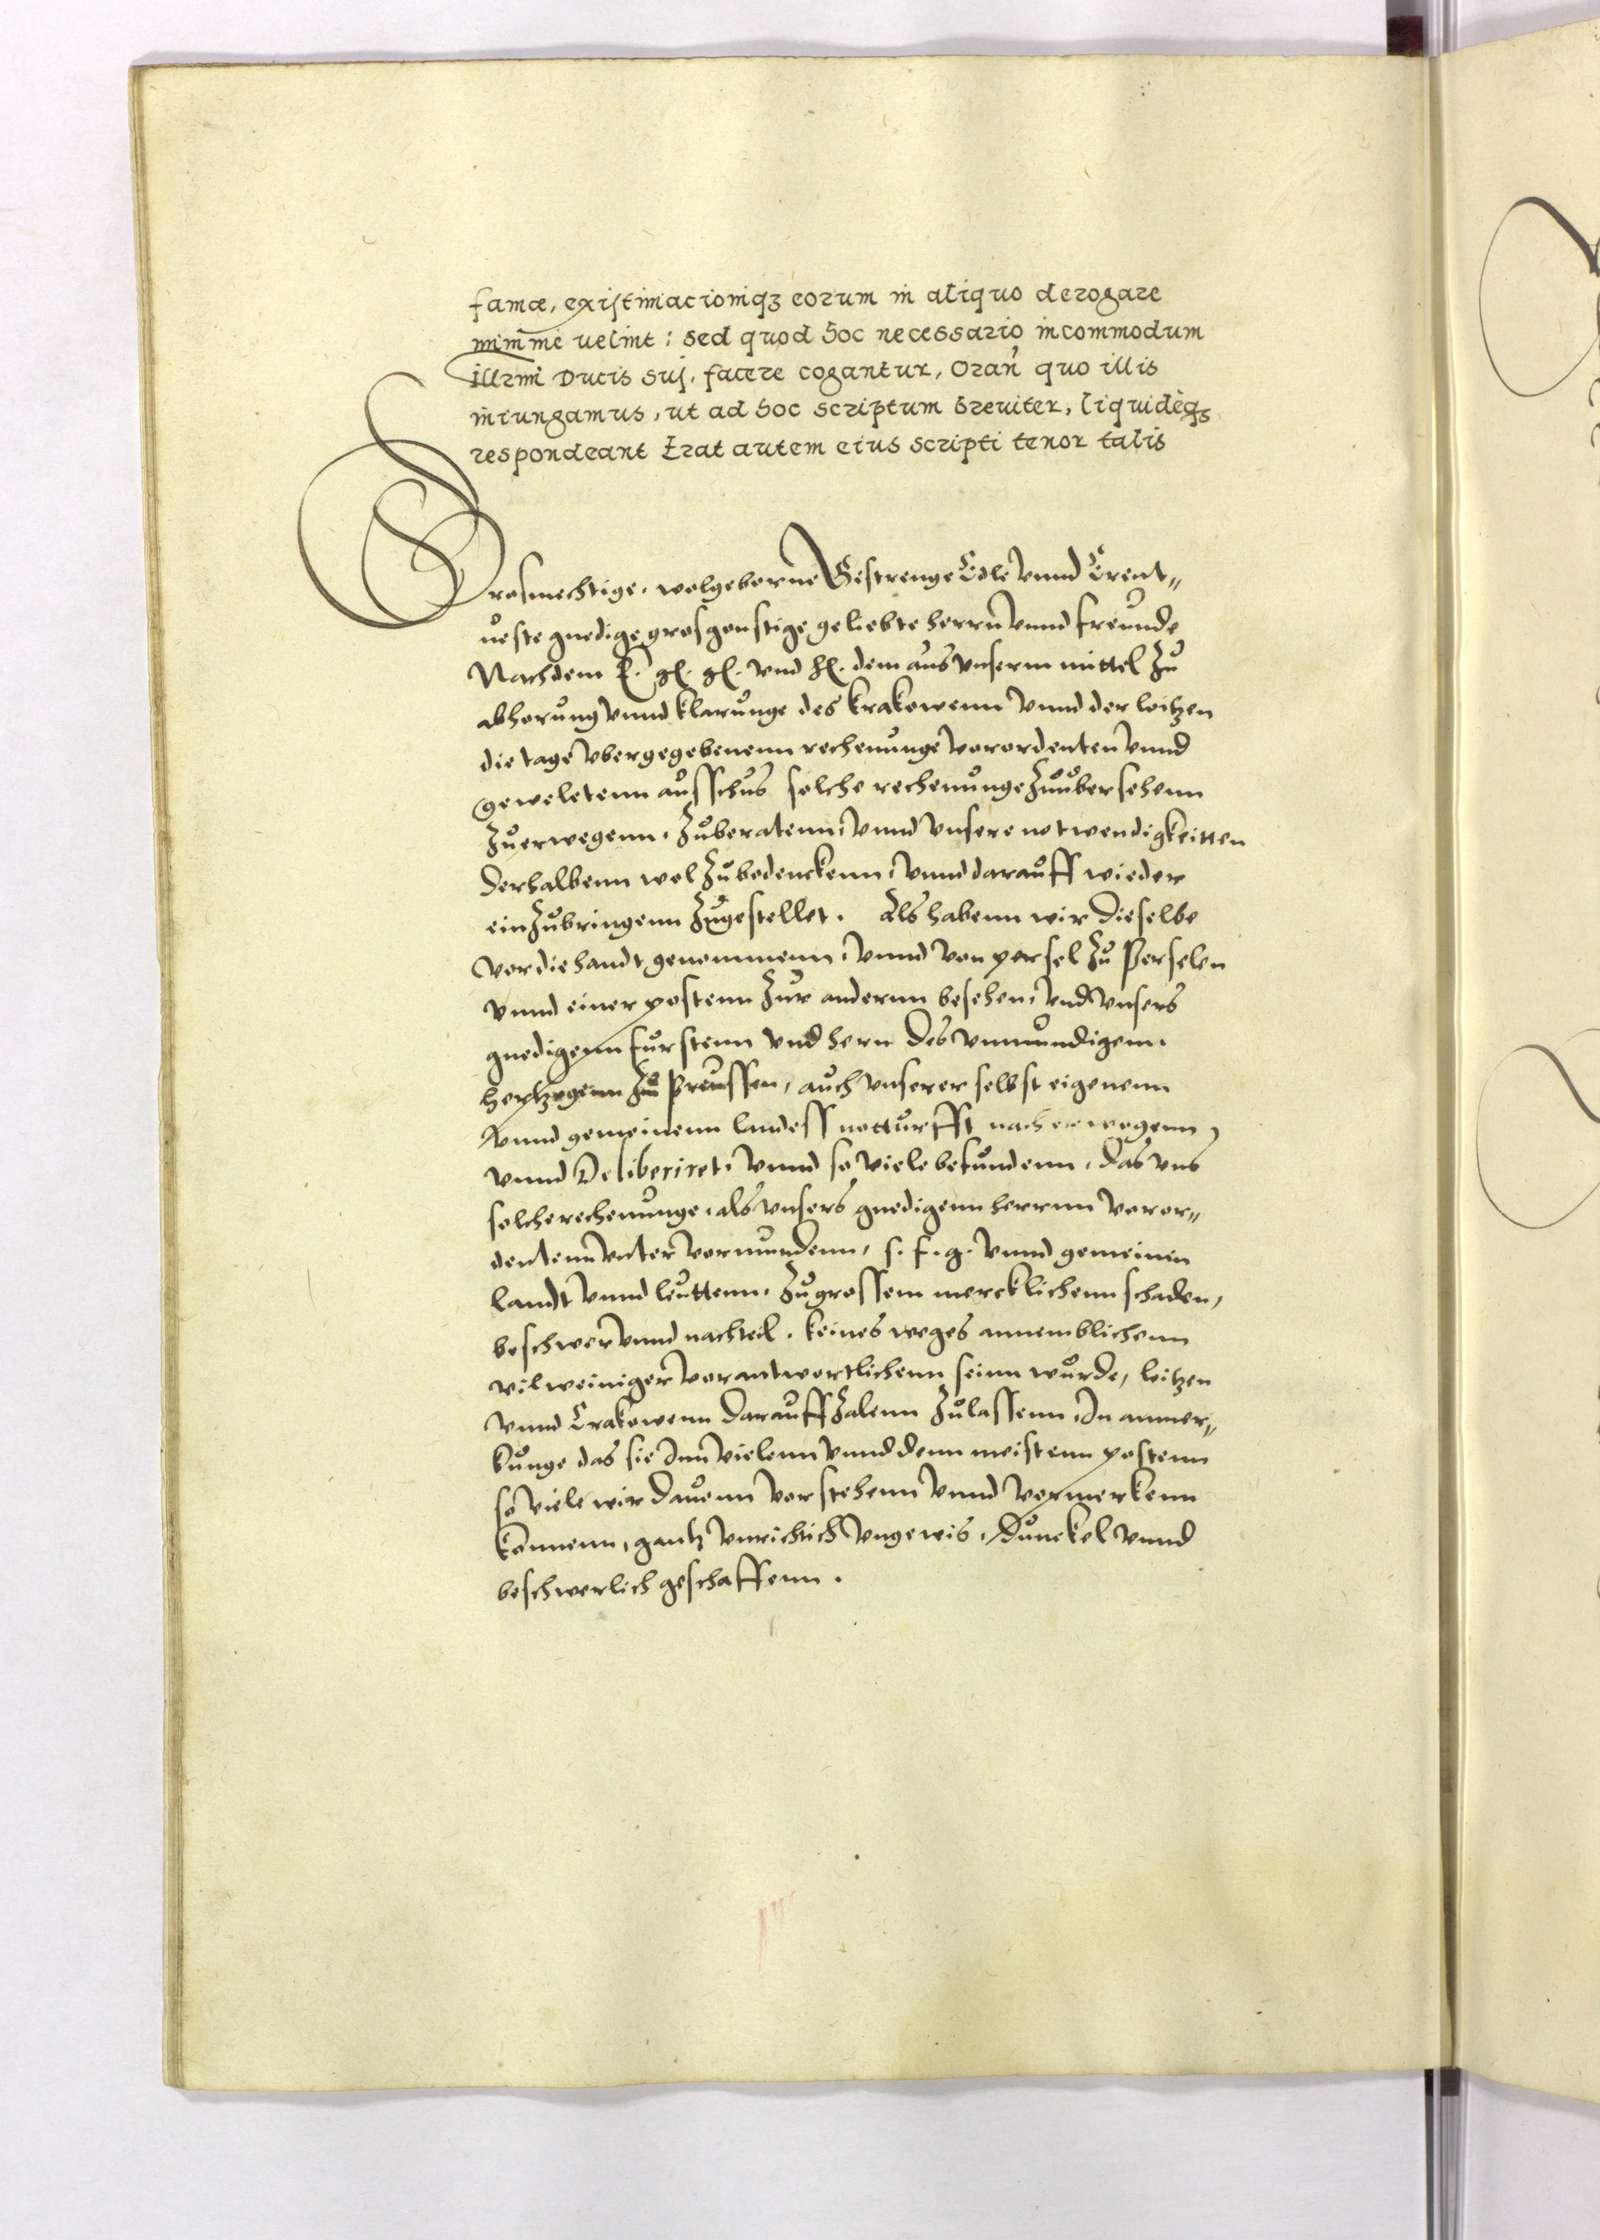 famæ, existimacioniqꝫ eorum in aliquo derogare
minime uelint: sed quod hoc necessario incommodum
Illrmi Ducis sui, facere cogantur, Oran̄ quo illis
iniungamus, ut ad hoc scriptum breuiter, liquideqꝫ
respondeant Erat autem eius scripti tenor talis
Grosmechtige, wolgeborne Gestrenge Edle vnnd Erent„
ueste gnedige grosgonstige geliebte herrn vnnd freunde
Nachdem E. gl. gl. vnd hl. dem aus vnserm mittel zu
abhorung vnnd klarunge des krakowenn vnnd der loitzen
die tage vbergegebenenn rechenunge vorordenten vnnd
geweletenn ausschus solche rechenunge zuubersehenn
zuerwegenn, zuberatenn, vnnd vnsere notwendigkeitten
derhalbenn wol zubedenckenn, vnnd darauff wieder
einzubringenn zugestellet. Als habenn wir dieselbe
vor die handt genommenn, vnnd von persel zu Perselen
vnnd einer postenn zur anderun besehen, vnd vnsers
gnedigenn furstenn vnd hern des vnmundigenn
hertzogenn zu Preussen, auch vnserer selbst eigenenn
vnnd gemeinenn landess notturfft nach erwegenn,
vnnd Deliberiret, vnnd so viele befundenn, das vns
solche rechenunge, als vnsers gnedigenn herrnn voror„
dentenn vnter vormundenn, s. f. g. vnnd gemeinin
landt vnnd leuttenn, zu grossem mercklichenn schaden,
beschwer vnnd nachteil, keines weges annemblichenn
vil weiniger vorantwortlichenn seinn wurde, loitzen
vnnd Crakowenn darauff zalenn zulassenn, In anmer„
kunge das sie Inn vielenn vnnd denn meistenn postenn
so viele wir dauonn vorstehenn vnnd vormerkenn
konnenn, gantz vnrichtich vngewis, dunckel vnnd
beschwerlich geschaffenn.